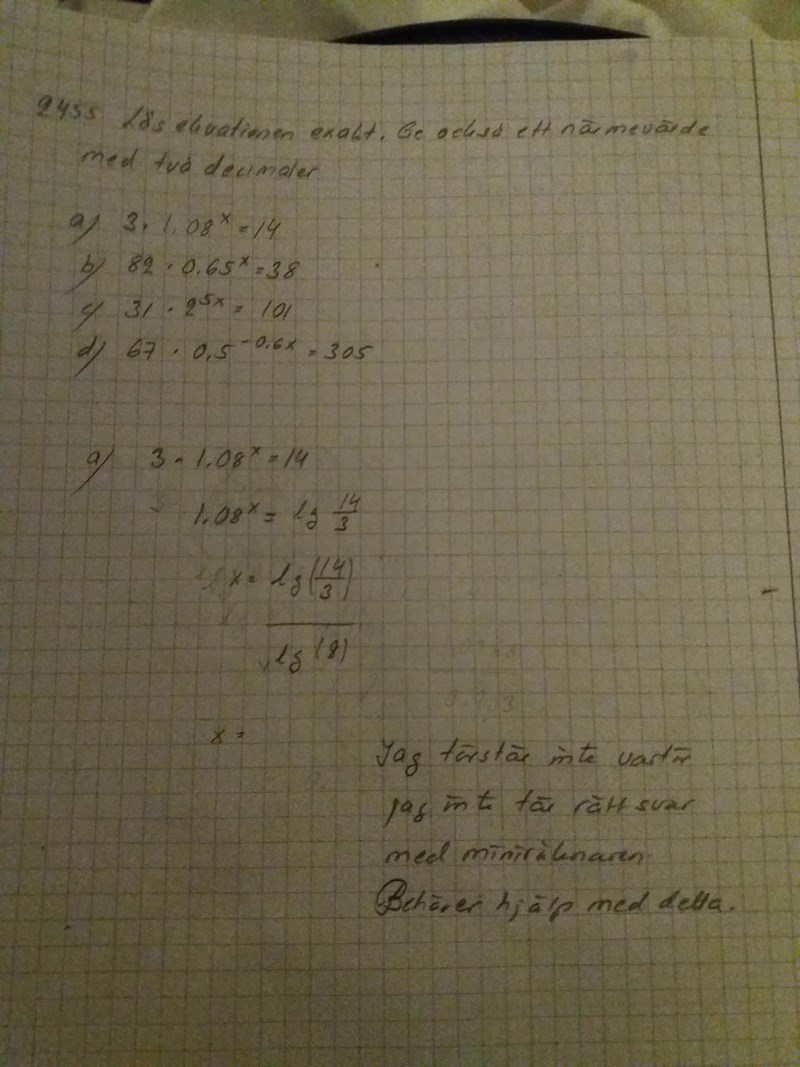 2455 Lös ekvationen exakt. Ge också ett närmevärde
med två decimaler
a) 3 · 1,08^x = 14
b) 82 · 0,65^x = 38
c) 31 · 2^5x = 101
d) 67 · 0,5^-0,6x = 305
a) 3 · 1,08^x = 14
1,08^x = lg 14/3
x = lg(14/3)
lg(8)
x =
Jag förstår inte varför
jag inte får rätt svar
med miniräknaren
Behöver hjälp med detta.